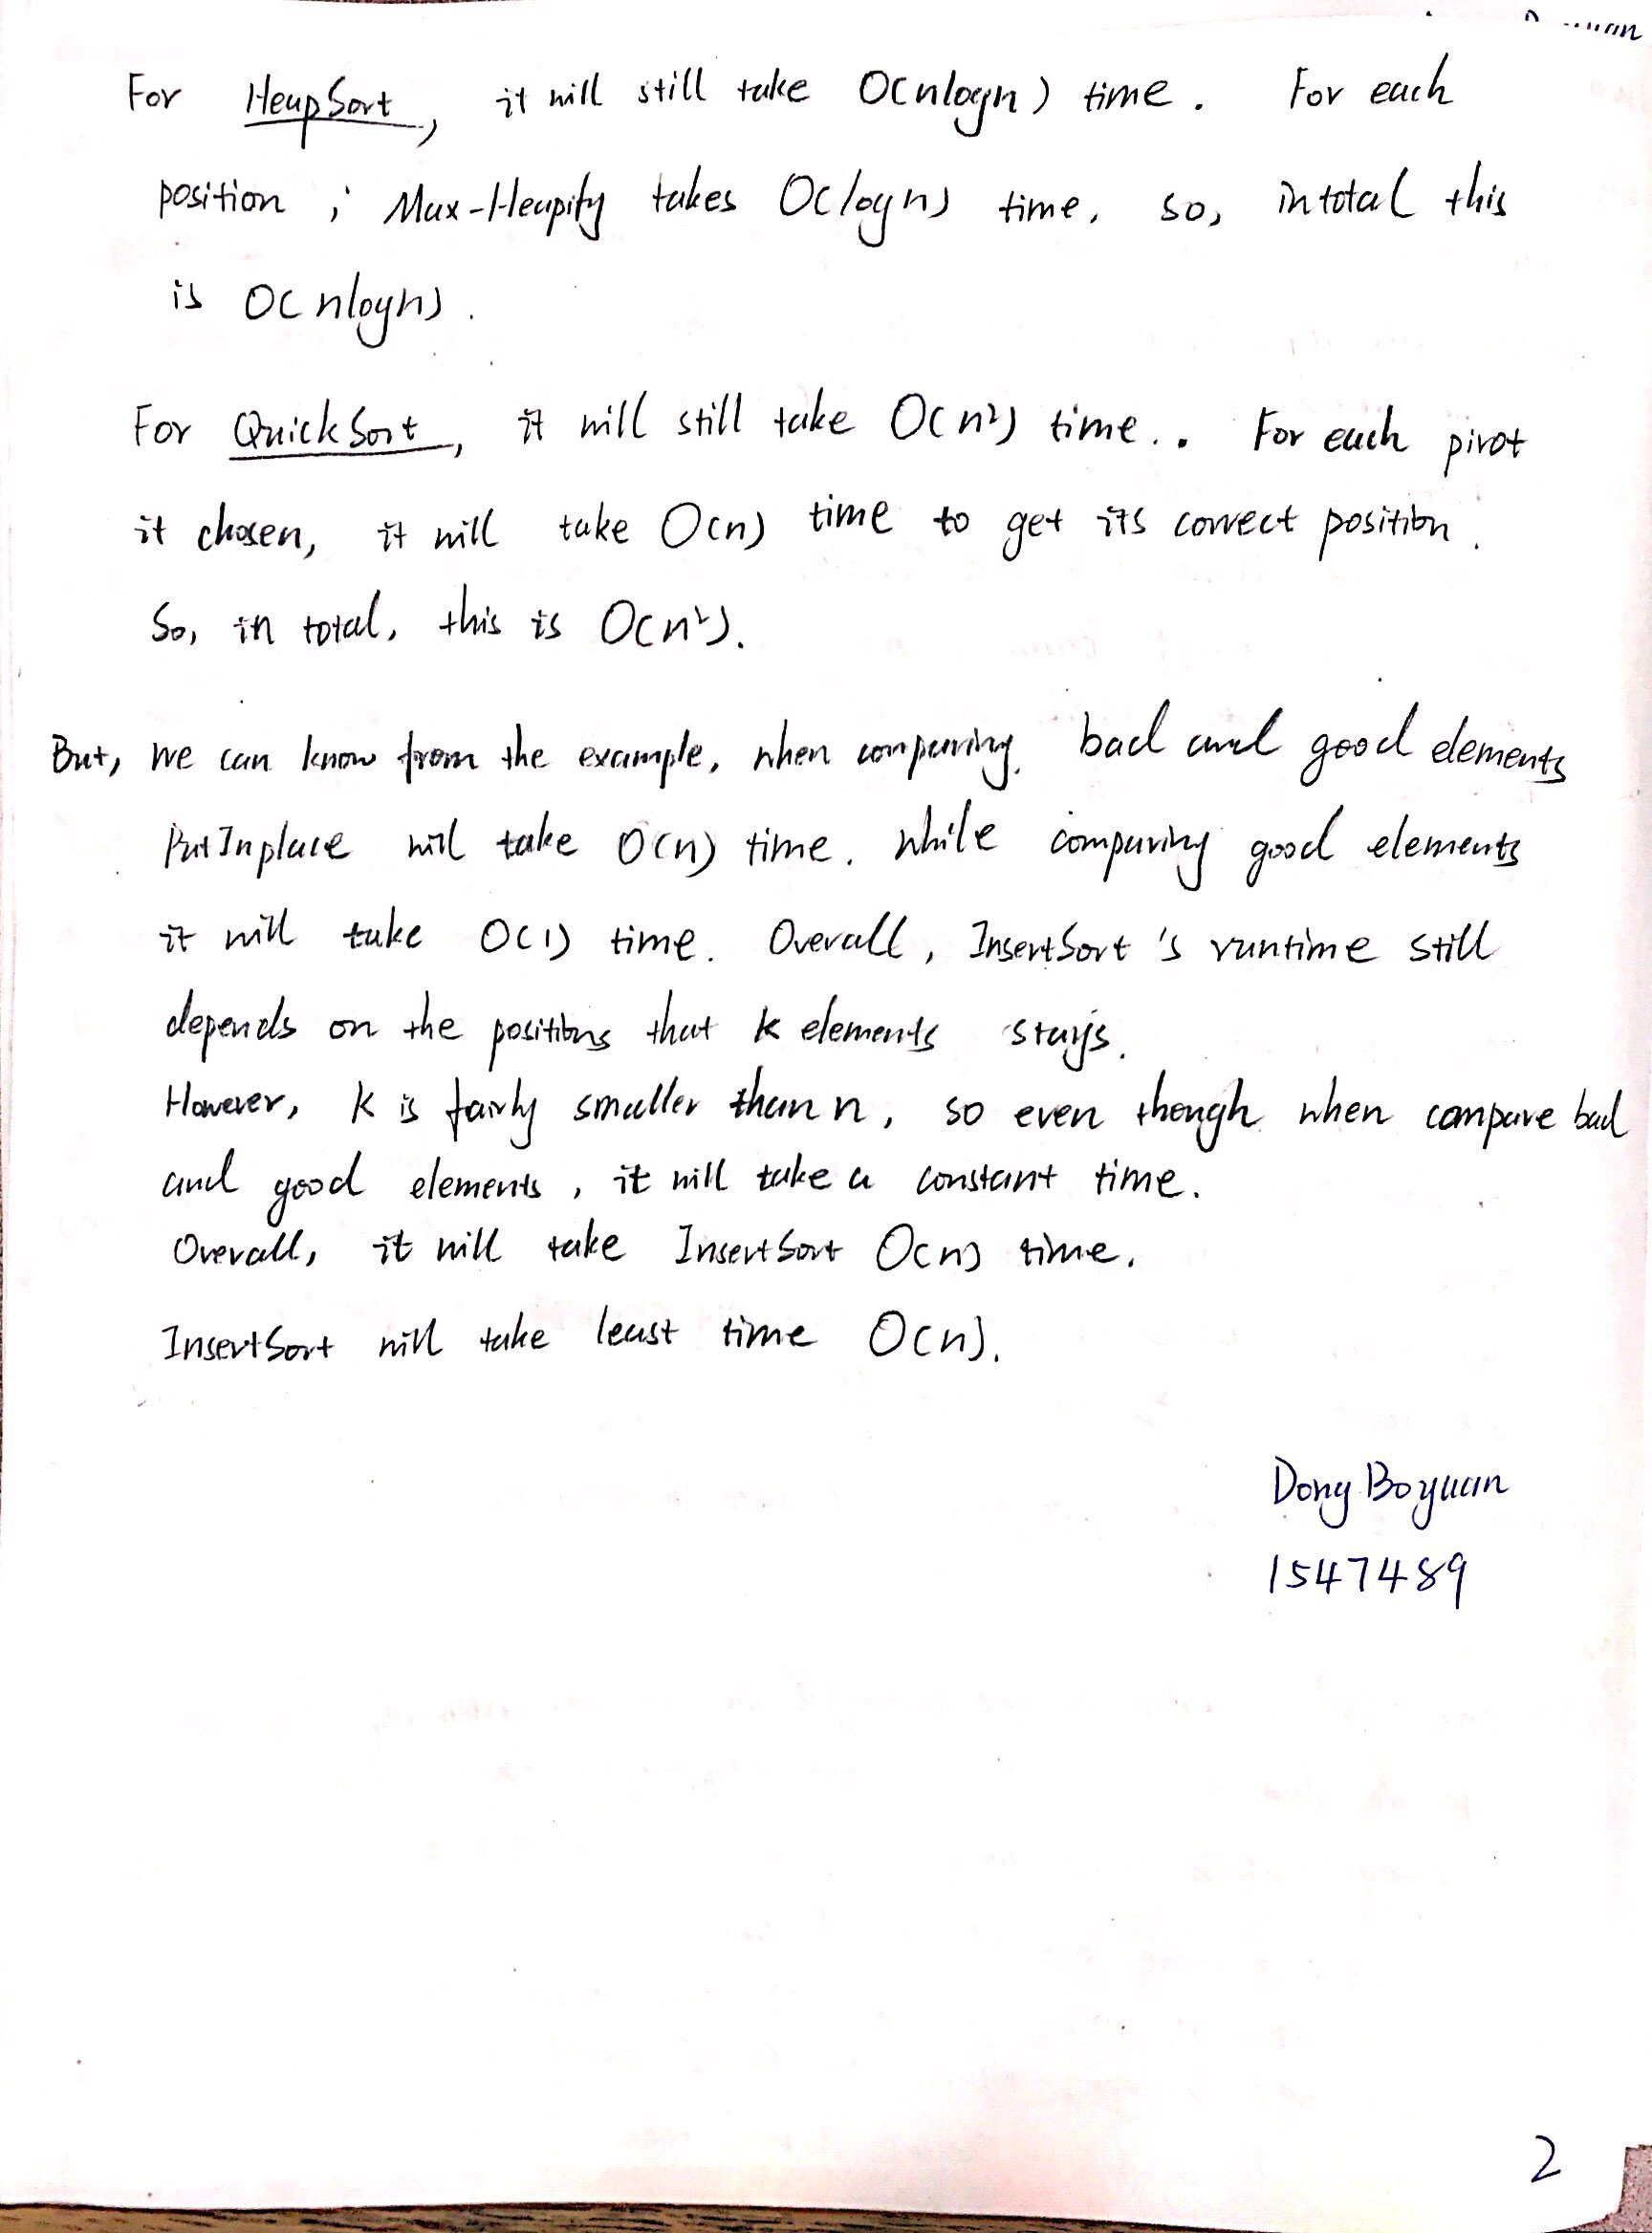 For HeapSort, it will still take O(nlogn) time. For each
position, Max-Heapify takes O(logn) time, so, in total this
is O(nlogn).
For QuickSort, it will still take O(n²) time.. For each pivot
it chosen, it will take O(n) time to get its correct position.
So, in total, this is O(n²).
But, we can know from the example, when comparing bad and good elements
PutInplace will take O(n) time. while comparing good elements
it will take O(1) time. Overall, InsertSort's runtime still
depends on the positions that k elements stays.
However, k is fairly smaller than n, so even though when compare bad
and good elements, it will take a constant time.
Overall, it will take InsertSort O(n) time.
InsertSort will take least time O(n).
Dong Boyuan
1547489
2